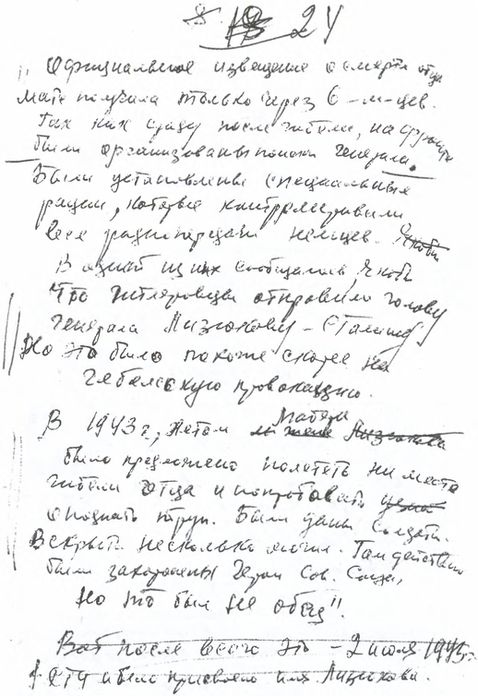 24
" Официальное извещение о смерти отца
мать получила только через 6-м-цев.
Так как сразу после гибели, на фронте
были организованы поиски генерала.
Были установлены специальные
рации, которые контролировали
все радиопередачи немцев. Якобы
В одной из них сообщалось, якобы
что гитлеровцы отправили голову
генерала Лизюкова – Сталину
Но это было похоже скорее на
гебельскую провокацию.
В 1943 г, летом матери Лизюкова
было предложено полететь на место
гибели отца и попробовать
опознать труп. Были даны солдаты.
Вскрыть несколько могил. Там действит
были захоронены Герои Сов. Союза,
но то был не отец".
Вот после всего это – 2 июля 1945г
было присвоено имя Лизюкова.